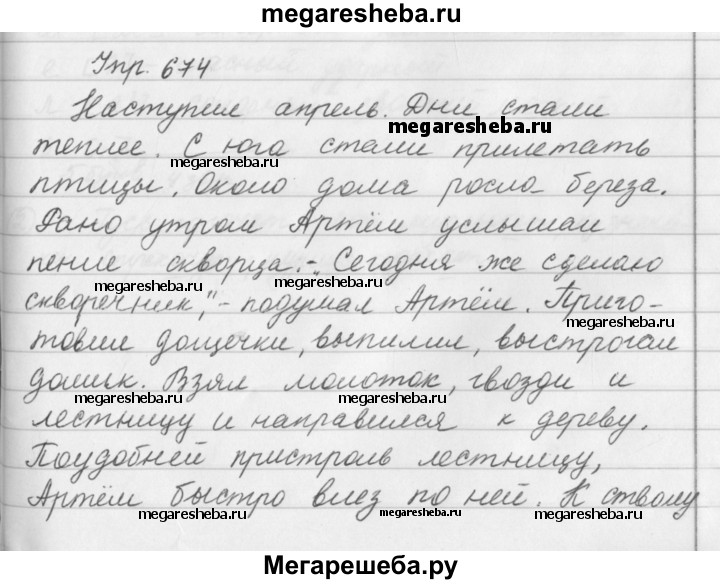 megaresheba.ru
Упр. 674
Наступил апрель. Дни стали
megaresheba.ru
теплее. С юга стали прилетать
megaresheba.ru
птицы. Около дома росла береза.
Рано утром Артём услышал
пение скворца. - Сегодня же сделаю
megaresheba.ru megaresheba.ru
скворечник," - подумал Артём. Приго-
megaresheba.ru
товил дощечки, выпилил, выстрогал
домик. Взял молоток, гвозди и
megaresheba.ru megaresheba.ru
лестницу и направился к дереву.
megaresheba.ru
Поудобней пристроив лестницу,
megaresheba.ru
Артём быстро влез по ней. К стволу
megaresheba.ru megaresheba.ru megaresheba.ru
Мегарешеба.ру